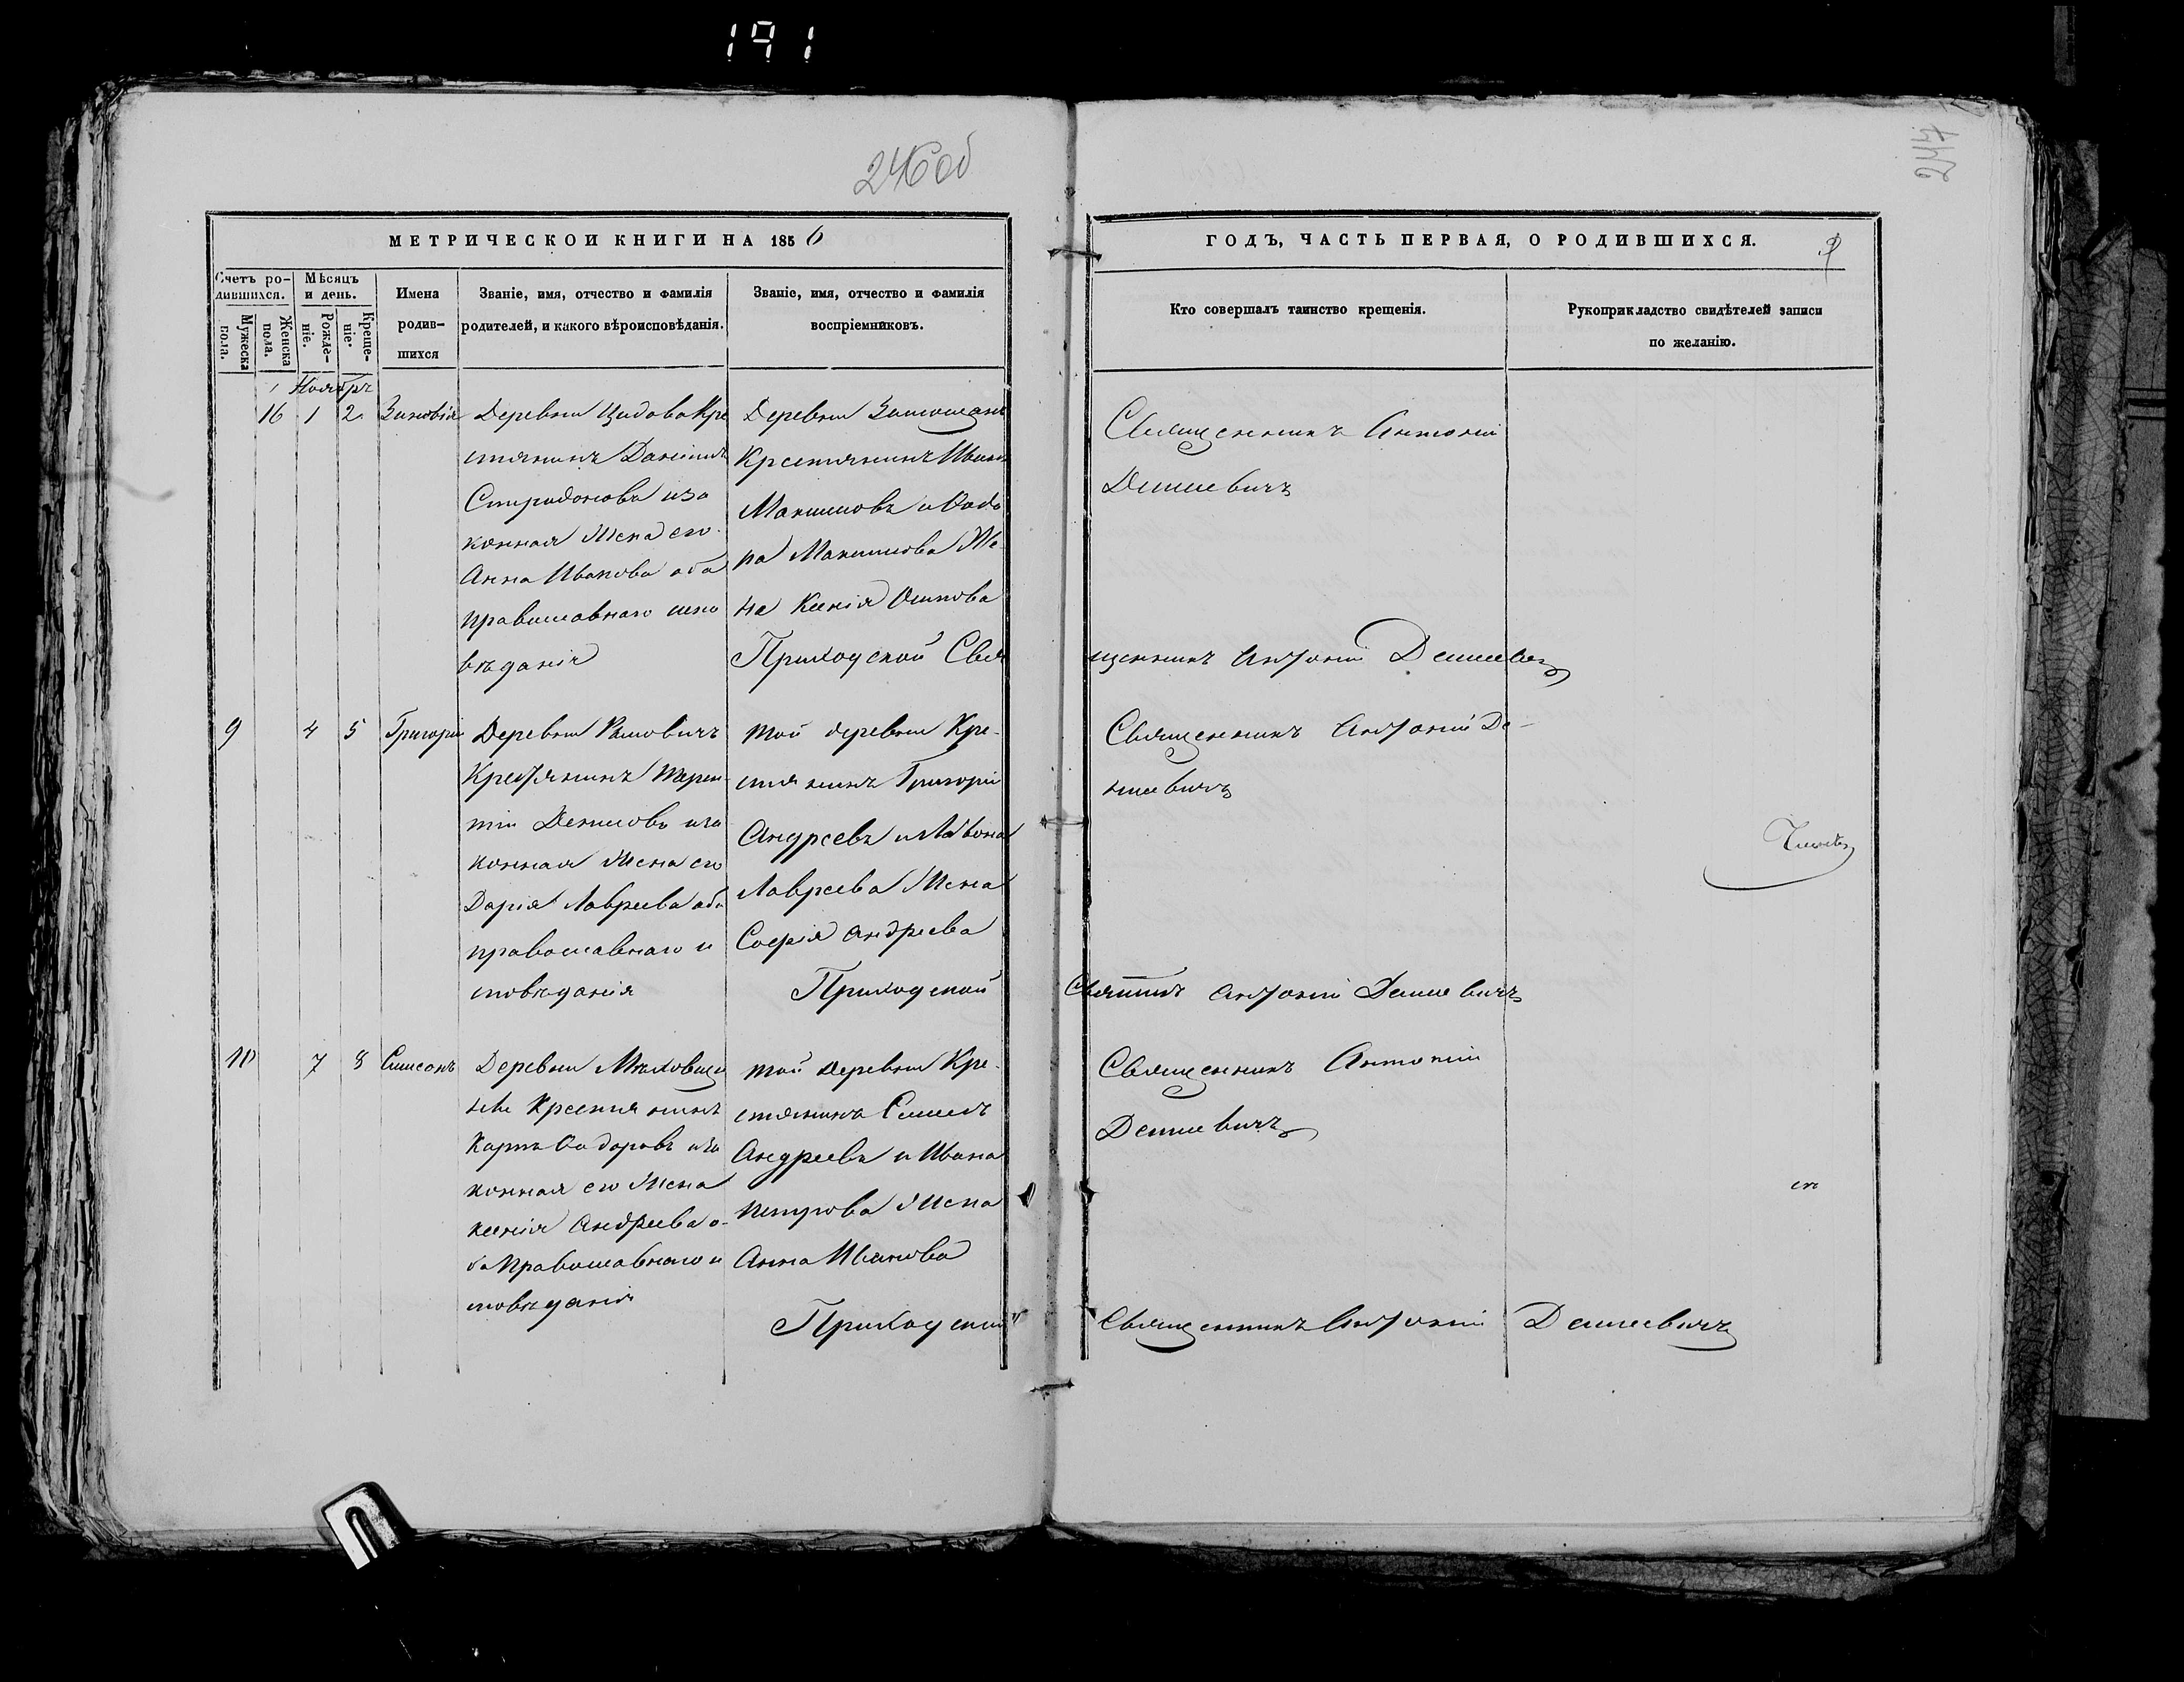 191
246 об
247
МЕТРИЧЕСКОЙ КНИГИ НА 1856
ГОДЪ, ЧАСТЬ ПЕРВАЯ, О РОДИВШИХСЯ.
9
Счетъ ро-
дившихся.
Мужеска
пола.
Женска
пола.
Мѣсяцъ
и день.
Рожде-
ніе.
Креще-
ніе.
Имена
родив-
шихся
Званіе, имя, отчество и фамилія
родителей, и какого вѣроисповѣданія.
Званіе, имя, отчество и фамилія
воспріемниковъ.
Кто совершалъ таинство крещенія.
Рукоприкладство свидѣтелей записи
по желанію.
Ноябръ
16 1 2 Зиновія
Деревни Цидова Кре
стянинъ Даніилъ
Спиридоновъ иза
конная Жена его
Анна Иванова оба
православнаго испо
вѣданія
Деревни
Крестянинъ Иванъ
Максимовъ и Ѳадо
ра Максимова Же
на Ксенія Осипова
Приходской Свя
Священникъ Антоній
Демшевичъ
щенникъ Антоній Демшевичъ
9 4 5 Григорій
Деревни
Крестянинъ Терен
тій Денисовъ иза
конная Жена его
Дарія Лавреева оба
православнаго и
сповѣданія
той деревни Кре-
стянинъ Григорій
Андреевъ и
Лавреева Жена
Софія Андреева
Приходской
Священникъ Антоній Де-
мшевичъ
Антоній Демшевичъ
10 7 8 Симеонъ
Деревни
Крестянинъ
Карпъ Ѳадоровъ иза
конная его Жена
Ксенія Андреева о-
ба Православнаго и
сповѣданія
той деревни Кре-
стянинъ
Андреевъ и Ивана
Петрова Жена
Анна Иванова
Приходской
Священникъ Антоній
Демшевичъ
Священникъ Антоній Демшевичъ